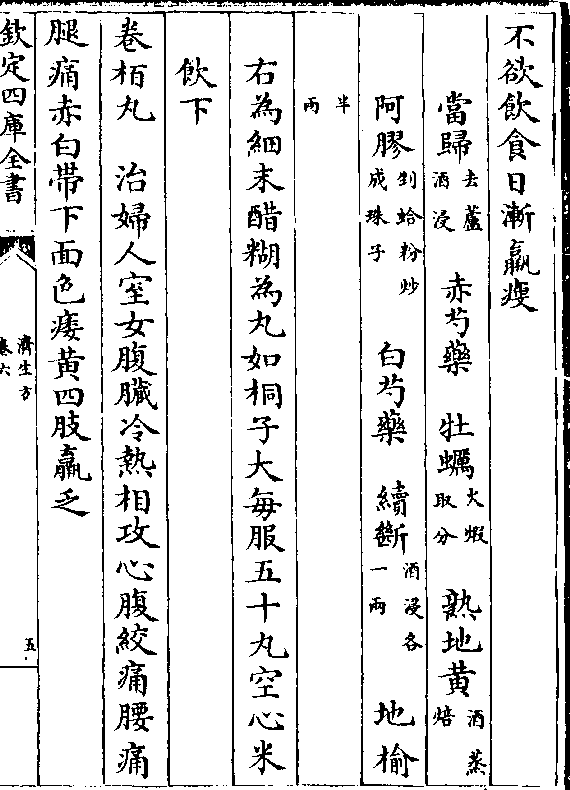 不欲飲食日漸羸瘦
當歸去蘆酒浸 赤芍藥 牡蠣火煅取分 熟地黄酒蒸焙
阿膠剉蛤粉炒成珠子 白芍藥 續斷酒浸各一兩 地榆
半兩
右為細末醋糊為丸如桐子大每服五十丸空心米
飲下
卷栢丸 治婦人室女腹臟冷熱相攻心腹絞痛腰痛
腿痛赤白帶下面色痿黄四肢羸乏
欽定四庫全書
濟生方
卷六
五